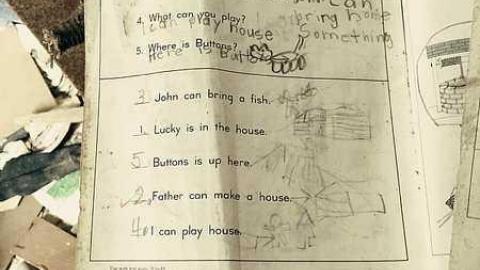 Can
4. What can you play? bring home
I can play house Something
5. Where is Buttons?
Here is Butt
3 John can bring a fish.
1 Lucky is in the house.
5 Buttons is up here.
2 Father can make a house.
4 I can play house.